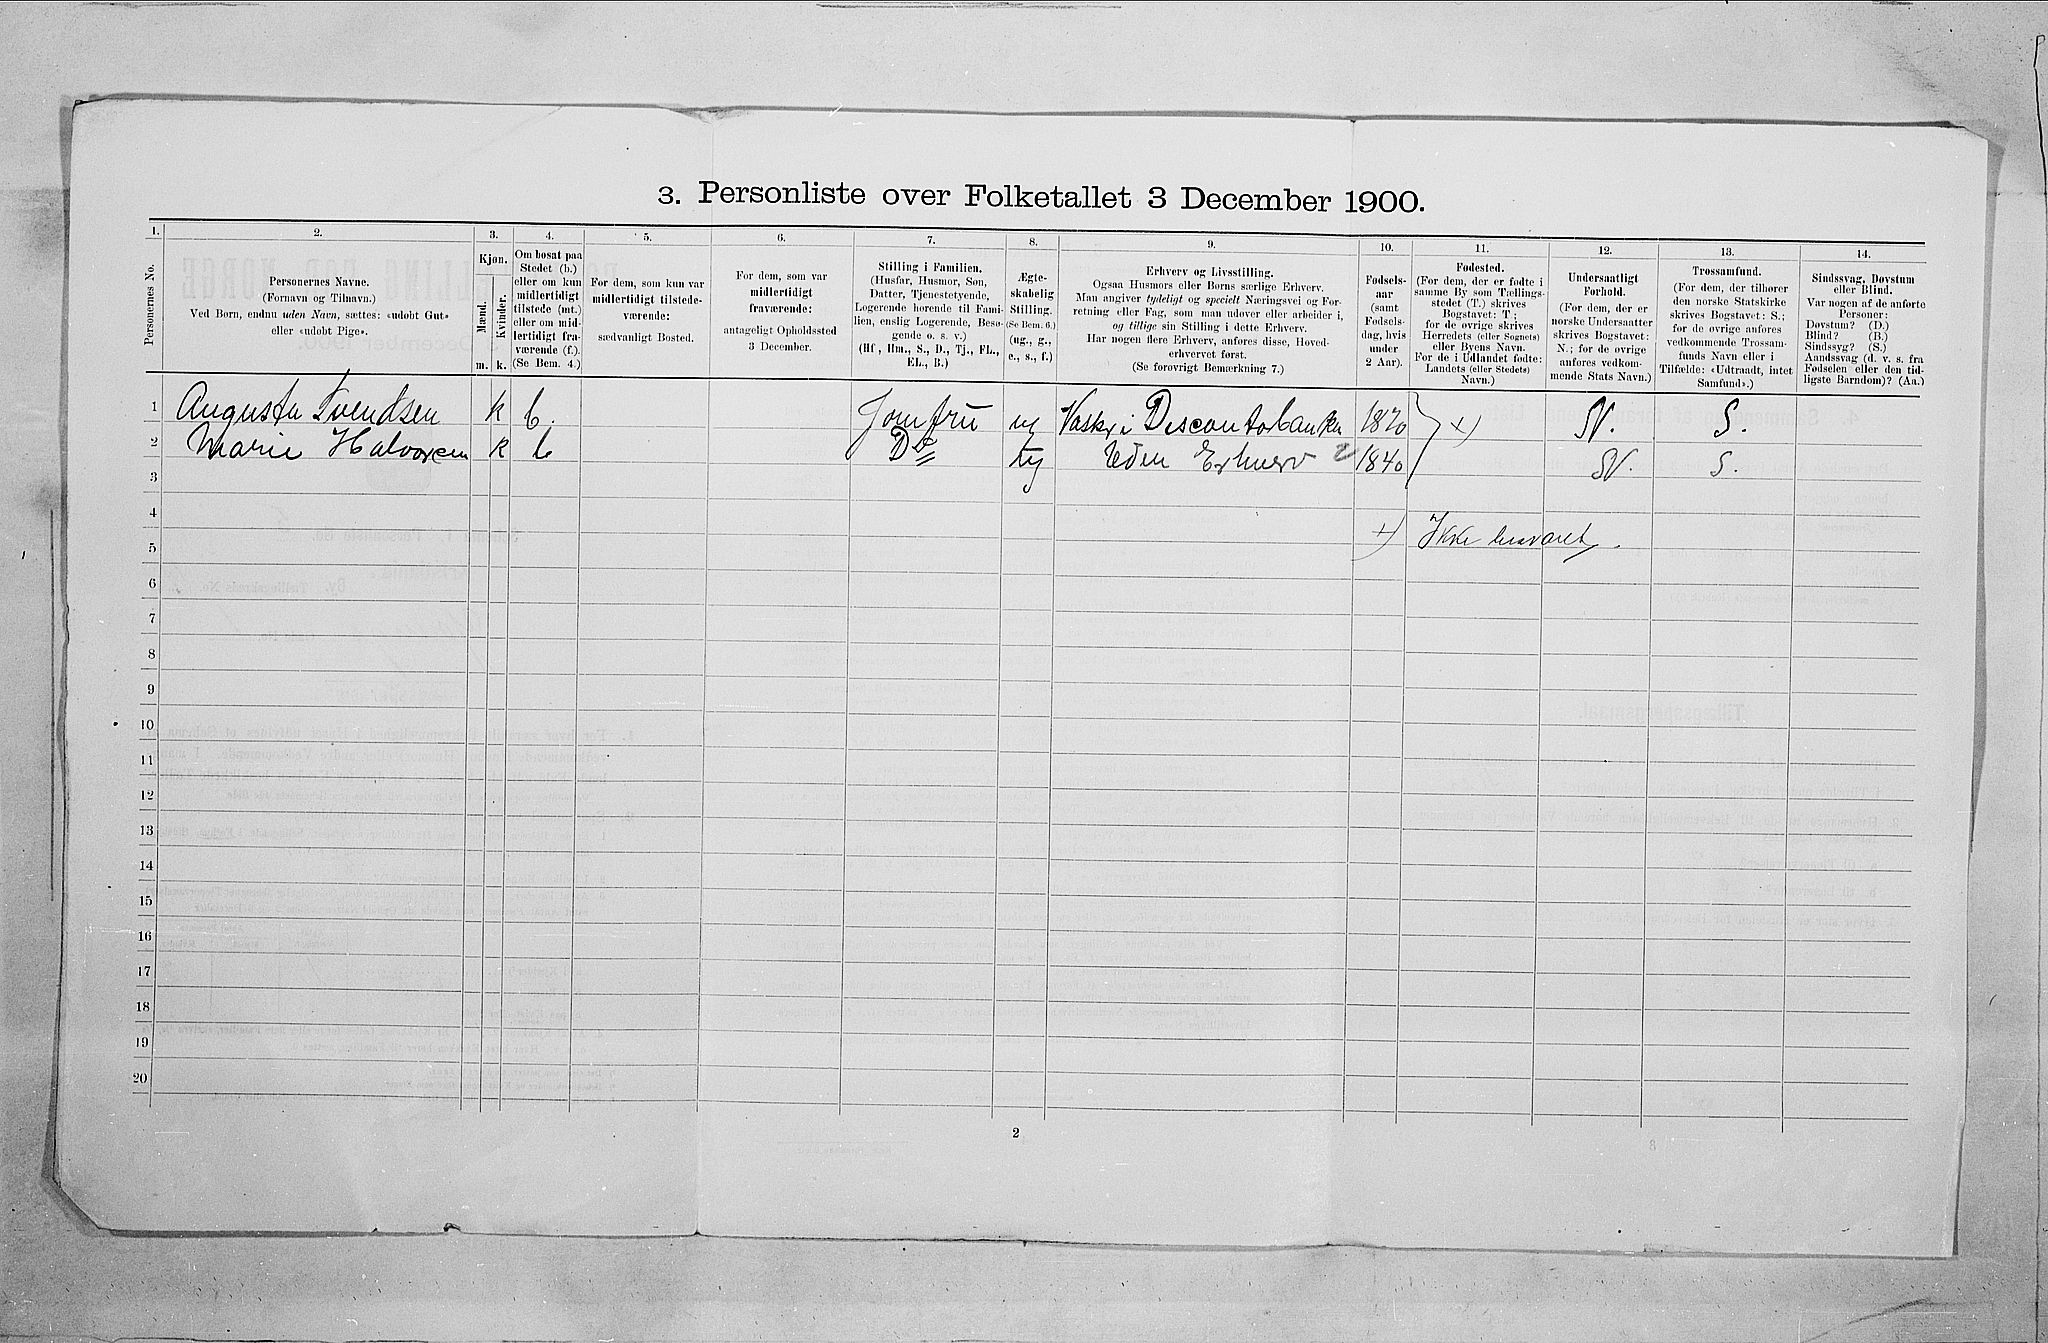 3. Personliste over Folketallet 3 December 1900.
1.
2.
3.
4.
5.
6.
7.
8.
9.
10.
11.
12.
13.
14.
Personernes No.
Personernes Navne.
(Fornavn og Tilnavn.)
Ved Børn, endnu uden Navn, sættes: «udøbt Gut»
eller «udøbt Pige».
Kjøn.
Mænd.
Kvinder.
m. k.
Om bosat paa
Stedet (b.)
eller om kun
midlertidigt
tilstede (mt.)
eller om mid-
lertidigt fra-
værende (f.).
(Se Bem. 4.)
For dem, som kun var
midlertidigt tilstede-
værende:
sædvanligt Bosted.
For dem, som var
midlertidigt
fraværende:
antageligt Opholdssted
3 December.
Stilling i Familien.
(Husfar, Husmor, Søn,
Datter, Tjenestetyende,
Logerende hørende til Fami-
lien, enslig Logerende, Besø-
gende o. s. v.)
(Hf, Hm., S., D., Tj., FL.,
EL., B.)
Ægte-
skabelig
Stilling.
(Se Bem. 6.)
(ug., g.,
e., s., f.)
Erhverv og Livsstilling.
Ogsaa Husmors eller Børns særlige Erhverv.
Man angiver tydeligt og specielt Næringsvei og For-
retning eller Fag, som man udøver eller arbeider i,
og tillige sin Stilling i dette Erhverv.
Har nogen flere Erhverv, anføres disse, Hoved-
erhvervet først.
(Se forøvrigt Bemærkning 7.)
Fødsels-
aar
(samt
Fødsels-
dag, hvis
under
2 Aar).
Fødested.
(For dem, der er fødte i
samme By som Tællings-
stedet (T.) skrives
Bogstavet: T;
for de øvrige skrives
Herredets (eller Sognets)
eller Byens Navn.
For de i Udlandet fødte:
Landets (eller Stedets)
Navn.)
Undersaatligt
Forhold.
(For dem, der er
norske Undersaatter
skrives Bogstavet:
N.; for de øvrige
anføres vedkom-
mende Stats Navn.)
Trossamfund.
(For dem, der tilhører
den norske Statskirke
skrives Bogstavet: S.;
for de øvrige anføres
vedkommende Trossam-
funds Navn eller i
Tilfælde: «Udtraadt, intet
Samfund».)
Sindssvag, Døvstum
eller Blind.
Var nogen af de anførte
Personer:
Døvstum? (D.)
Blind? (B.)
Sindssyg? (S.)
Aandssvag (d. v. s. fra
Fødselen eller den tid-
ligste Barndom)? (Aa.)
1 Augusta Svendsen k b. Jomfru ug Vasker i Discontobanken 1870 x) N. S.
2 Marie Halvorsen k b Do ug Uden Erhverv 1840 N. S.
3
4
x) Ikke besvaret.
5
6
7
8
9
10
11
12
13
14
15
16
17
18
19
20
2